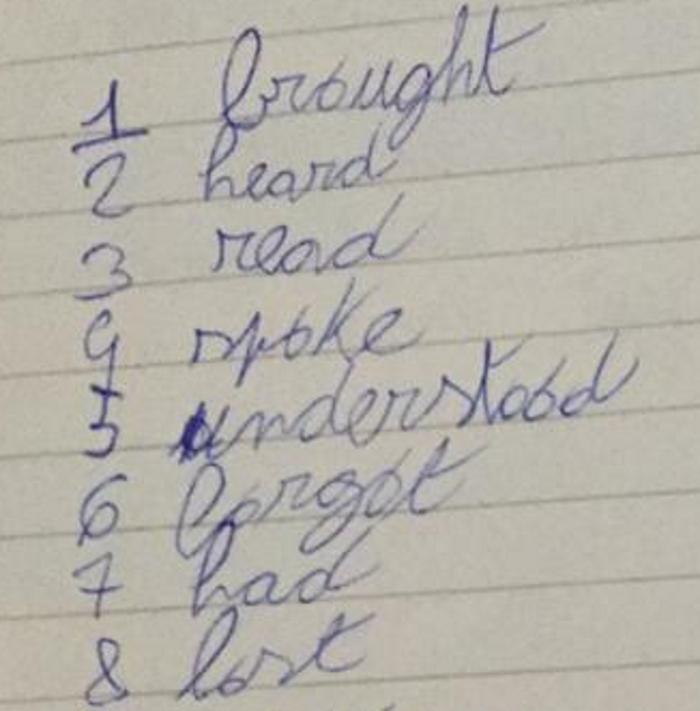 1 brought
2 heard
3 read
4 spoke
5 understood
6 forgot
7 had
8 lost